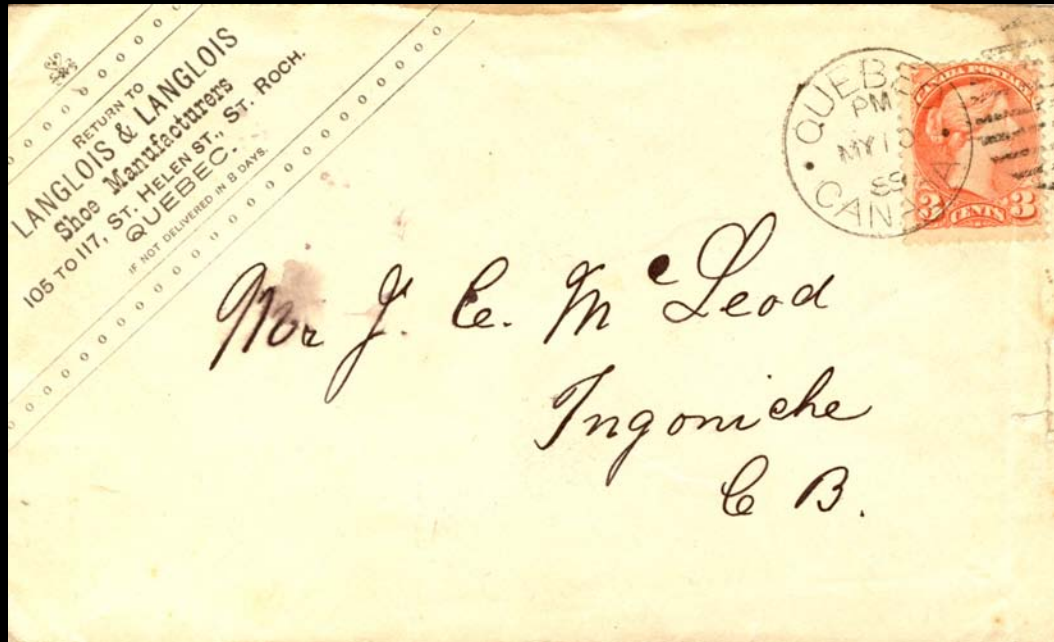 RETURN TO
LANGLOIS & LANGLOIS
Shoe Manufacturers
105 TO 117, ST. HELEN ST., ST. ROCH.
QUEBEC.
IF NOT DELIVERED IN 8 DAYS.
QUEBEC
PM
MY 10
89
CANADA
CANADA POSTAGE
3 CENTS 3
Mr J. C. McLeod
Ingoniche
C B.